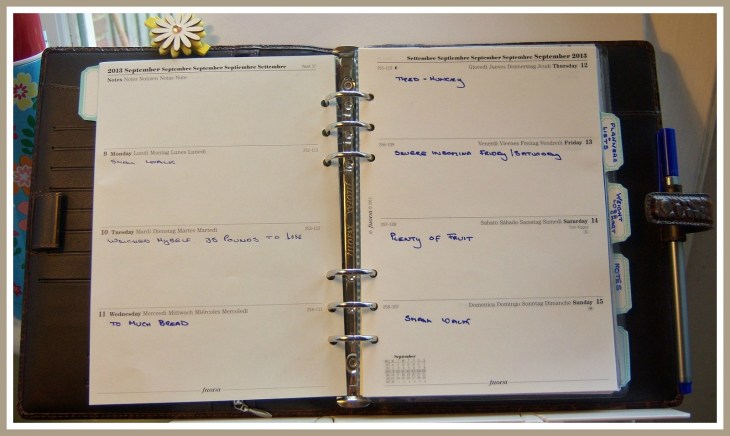 2013 September Septiembre September Septembre Settembre
Notes Notas Notizen Notes Note
9 Monday Lundi Montag Lunes Lunedì
SMALL WALK
10 Tuesday Mardi Dienstag Martes Martedì
WEIGHED MYSELF 35 POUNDS TO LOSE
11 Wednesday Mercredi Mittwoch Miércoles Mercoledì
TO MUCH BREAD
filofax
Settembre Septiembre September Septembre September 2013
Giovedì Jueves Donnerstag Jeudi Thursday 12
TIRED - HUNGRY
Venerdì Viernes Freitag Vendredi Friday 13
SEVERE INSOMNIA FRIDAY/SATURDAY
Sabato Sábado Samstag Samedi Saturday 14
PLENTY OF FRUIT
Domenica Domingo Sonntag Dimanche Sunday 15
SMALL WALK
September
filofax
PLANNERS
LISTS
WEIGHT
NOTES